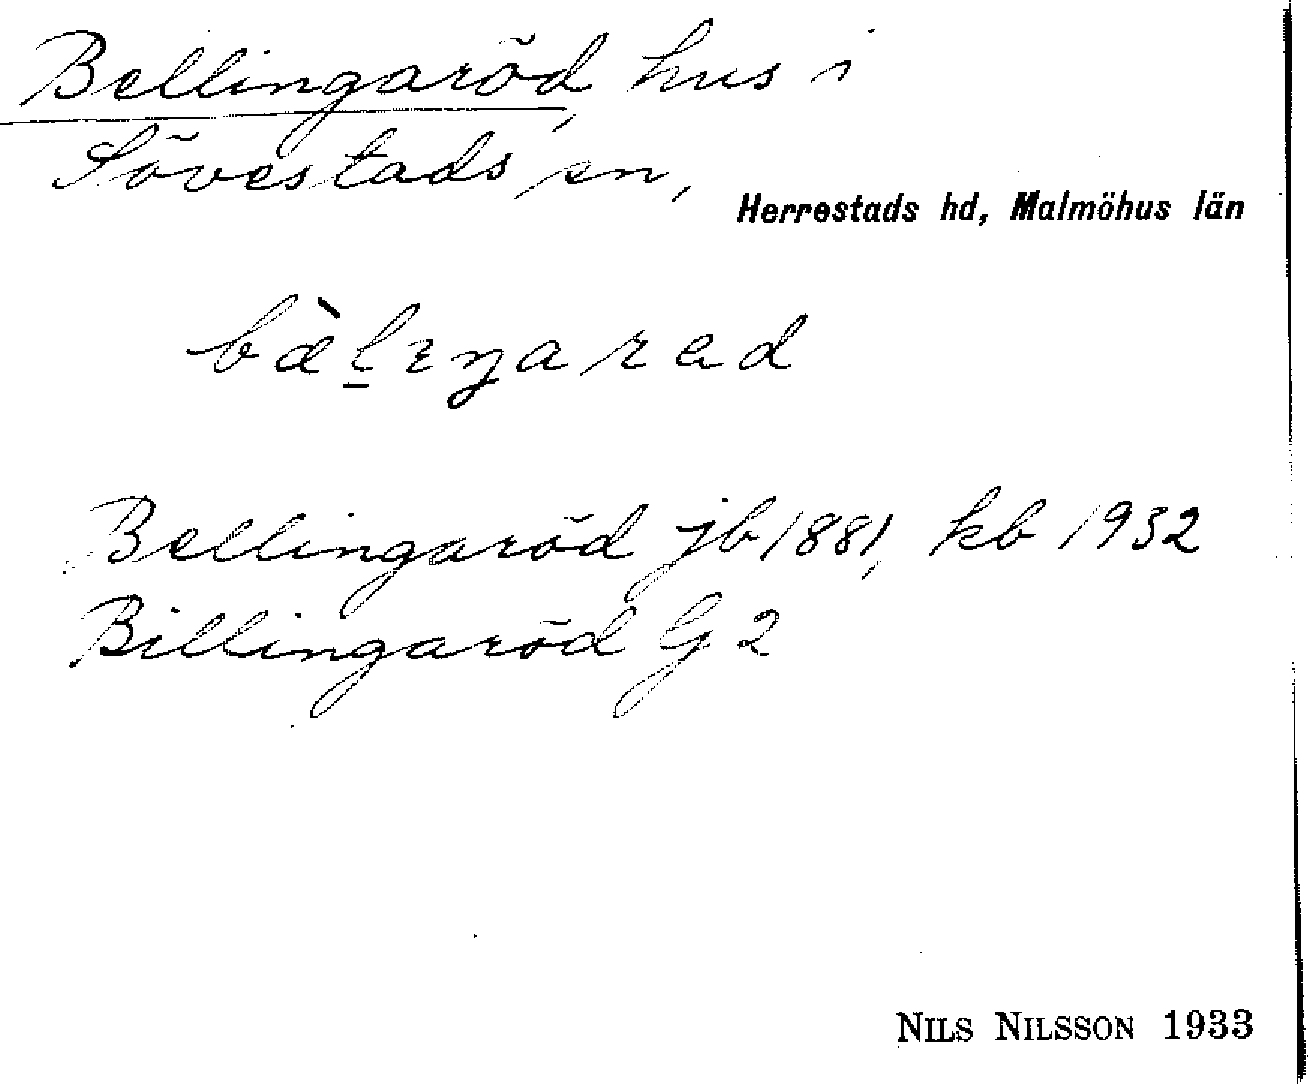 Bellingaröd, hus i
Sövestads sn,
Herrestads hd, Malmöhus län
bæ̀l̲ıŋarad
Bellingaröd jb 1881, kb 1932
Billingaröd G 2
NILS NILSSON 1933